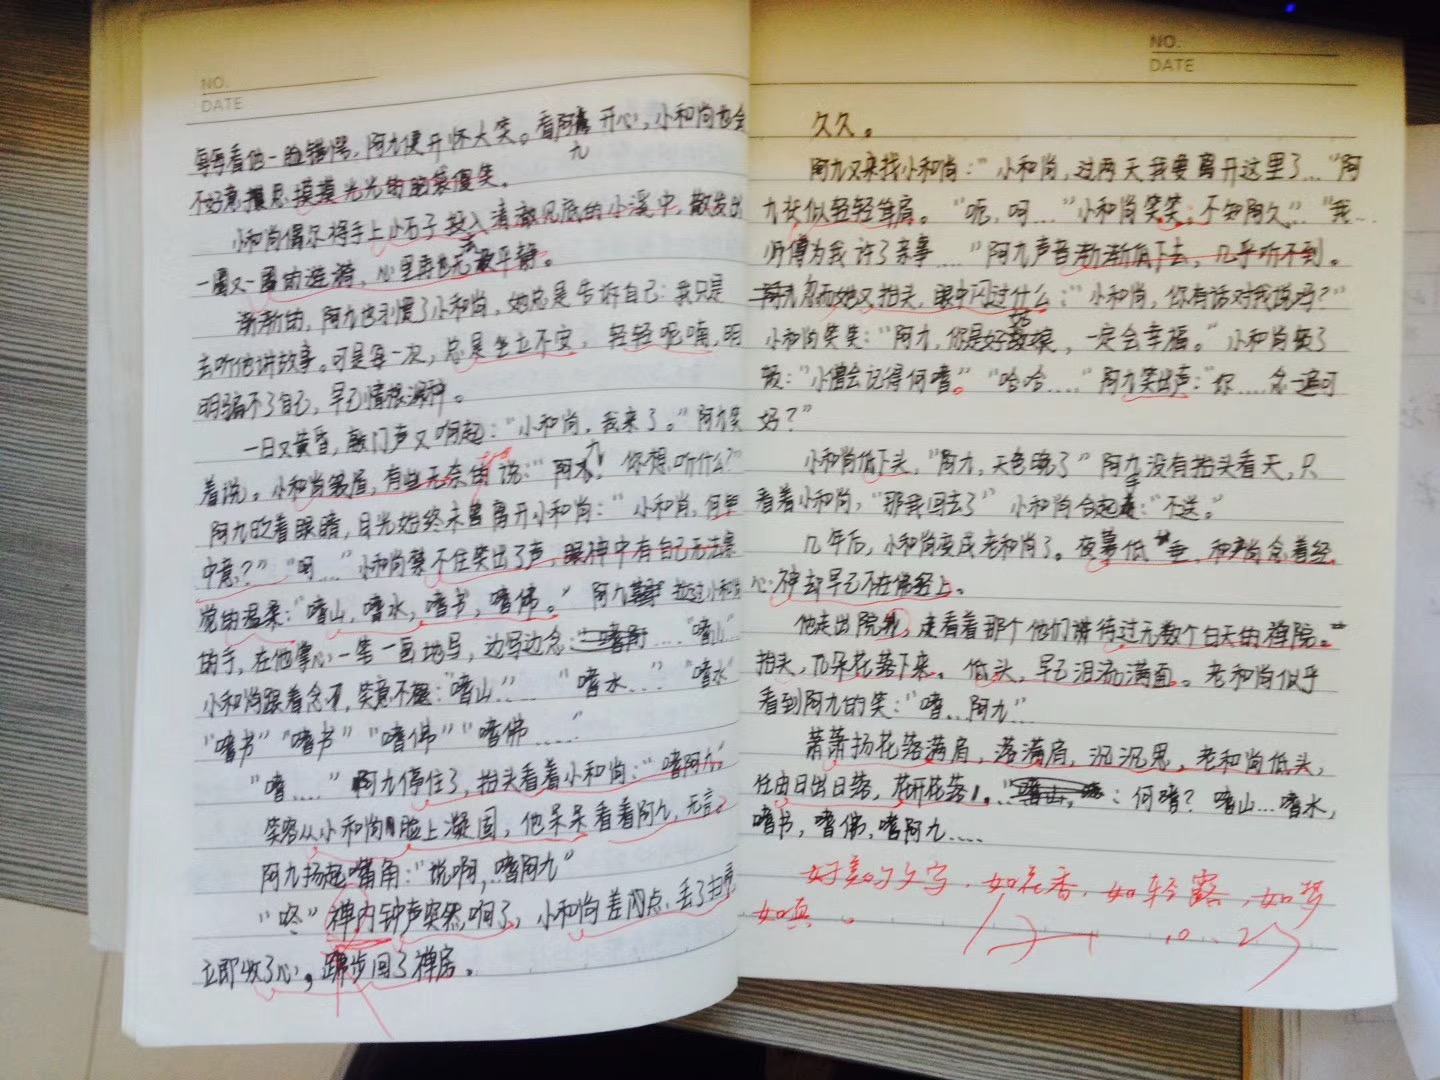 NO.
DATE
每每看他一脸错愕，阿九便开怀大笑。看阿九开心，小和尚也会
不好意思摸摸光光的脑袋傻笑。
小和尚偶尔将手上小石子投入清澈见底的小溪中，散发出
一圈又一圈的涟漪，心里再也无法平静。
渐渐的，阿九也习惯了小和尚，她总是告诉自己：我只是
去听他讲故事。可是每一次，总是坐立不安，轻轻呢喃，明
明骗不了自己，早已情根深种。
一日又黄昏，敲门声又响起：“小和尚，我来了。”阿九笑
着说。小和尚皱眉，有些无奈的说：“阿九！你想听什么？”
阿九眨着眼睛，目光始终未曾离开小和尚：“小和尚，何
中意？”“呵…”小和尚禁不住笑出了声，眼神中有自己无法察
觉的温柔：“嗜山，嗜水，嗜书，嗜佛。”阿九拉过小和尚
的手，在他掌心一笔一画地写，边写边念：“….“嗜山”
小和尚跟着念了，笑意不褪：“嗜山”…. “嗜水…” “嗜水
“嗜书” “嗜书” “嗜佛” “嗜佛……”
“嗜….” 阿九停住了，抬头看着小和尚：“嗜阿九。”
笑容从小和尚脸上凝固，他呆呆看着阿九，无言。
阿九扬起嘴角：“说啊，嗜阿九”
“咚”禅内钟声突然响了，小和尚差点，丢了
立即收了心，步回了禅房。
NO.
DATE
久久。
阿九又来找小和尚：“小和尚，过两天我要离开这里了…”阿
九状似轻轻耸肩。“呃，呵….”小和尚笑笑：不知阿久”. “我…
师傅为我许了亲事….”阿九声音渐渐低下去，几乎听不到。
忽而她又抬头，眼中闪过什么：“小和尚，你有话对我说吗？”
小和尚笑笑：“阿九，你是好姑娘，一定会幸福。”小和尚顿了
顿：“小僧会记得何嗜。”“哈哈….”阿九笑出声：“你….念一遍可
好？”
小和尚低下头，“阿九，天色晚了”阿九没有抬头看天，只
看着小和尚，“那我回去了”小和尚合起：“不送。”
几年后，小和尚变成老和尚了。夜幕低垂，和尚念着经，
心神却早已不在佛经上。
他走出院，走看着那个他们等待过无数个白天的禅院。
抬头，几朵花落下来。低头，早已泪流满面。老和尚似乎
看到阿九的笑：“嗜…阿九”
萧萧扬花落满肩，落满肩，沉沉思，老和尚低头，
任由日出日落，花开花落。：何嗜？嗜山…嗜水，
嗜书，嗜佛，嗜阿九….
好美的文字，如花香，如轻露，如梦
如嗔。
10.27